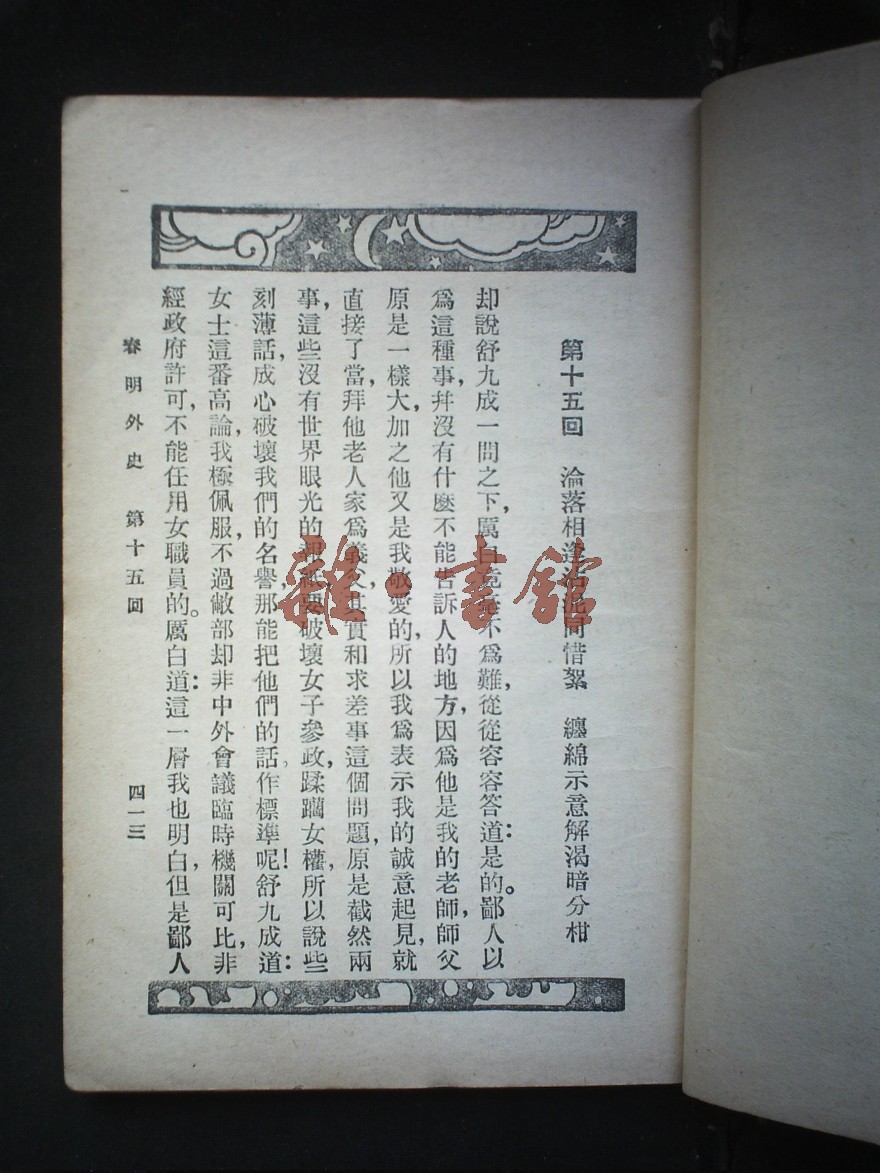 第十五回　淪落相逢沾泥同惜絮　纏綿示意解渴暗分柑
却說舒九成一問之下，厲白竟毫不爲難，從從容容答道：是的。鄙人以
爲這種事，幷沒有什麼不能告訴人的地方，因爲他是我的老師，師父
原是一樣大，加之他又是我敬愛的，所以我爲表示我的誠意起見，就
直接了當，拜他老人家爲義父，其實和求差事這個問題，原是截然兩
事，這些沒有世界眼光的報紙，要破壞女子參政，蹂躪女權，所以說些
刻薄話，成心破壞我們的名譽，那能把他們的話作標準呢！舒九成道：
女士這番高論，我極佩服，不過敝部却非中外會議臨時機關可比，非
經政府許可，不能任用女職員的。厲白道：這一層我也明白，但是鄙人
春明外史　第十五回　四一三
雜·書館